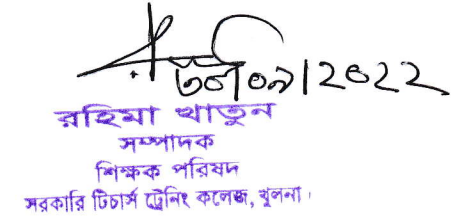 ০৯।২০২২
রহিমা খাতুন
সম্পাদক
শিক্ষক পরিষদ
সরকারি টিচার্স ট্রেনিং কলেজ, খুলনা।